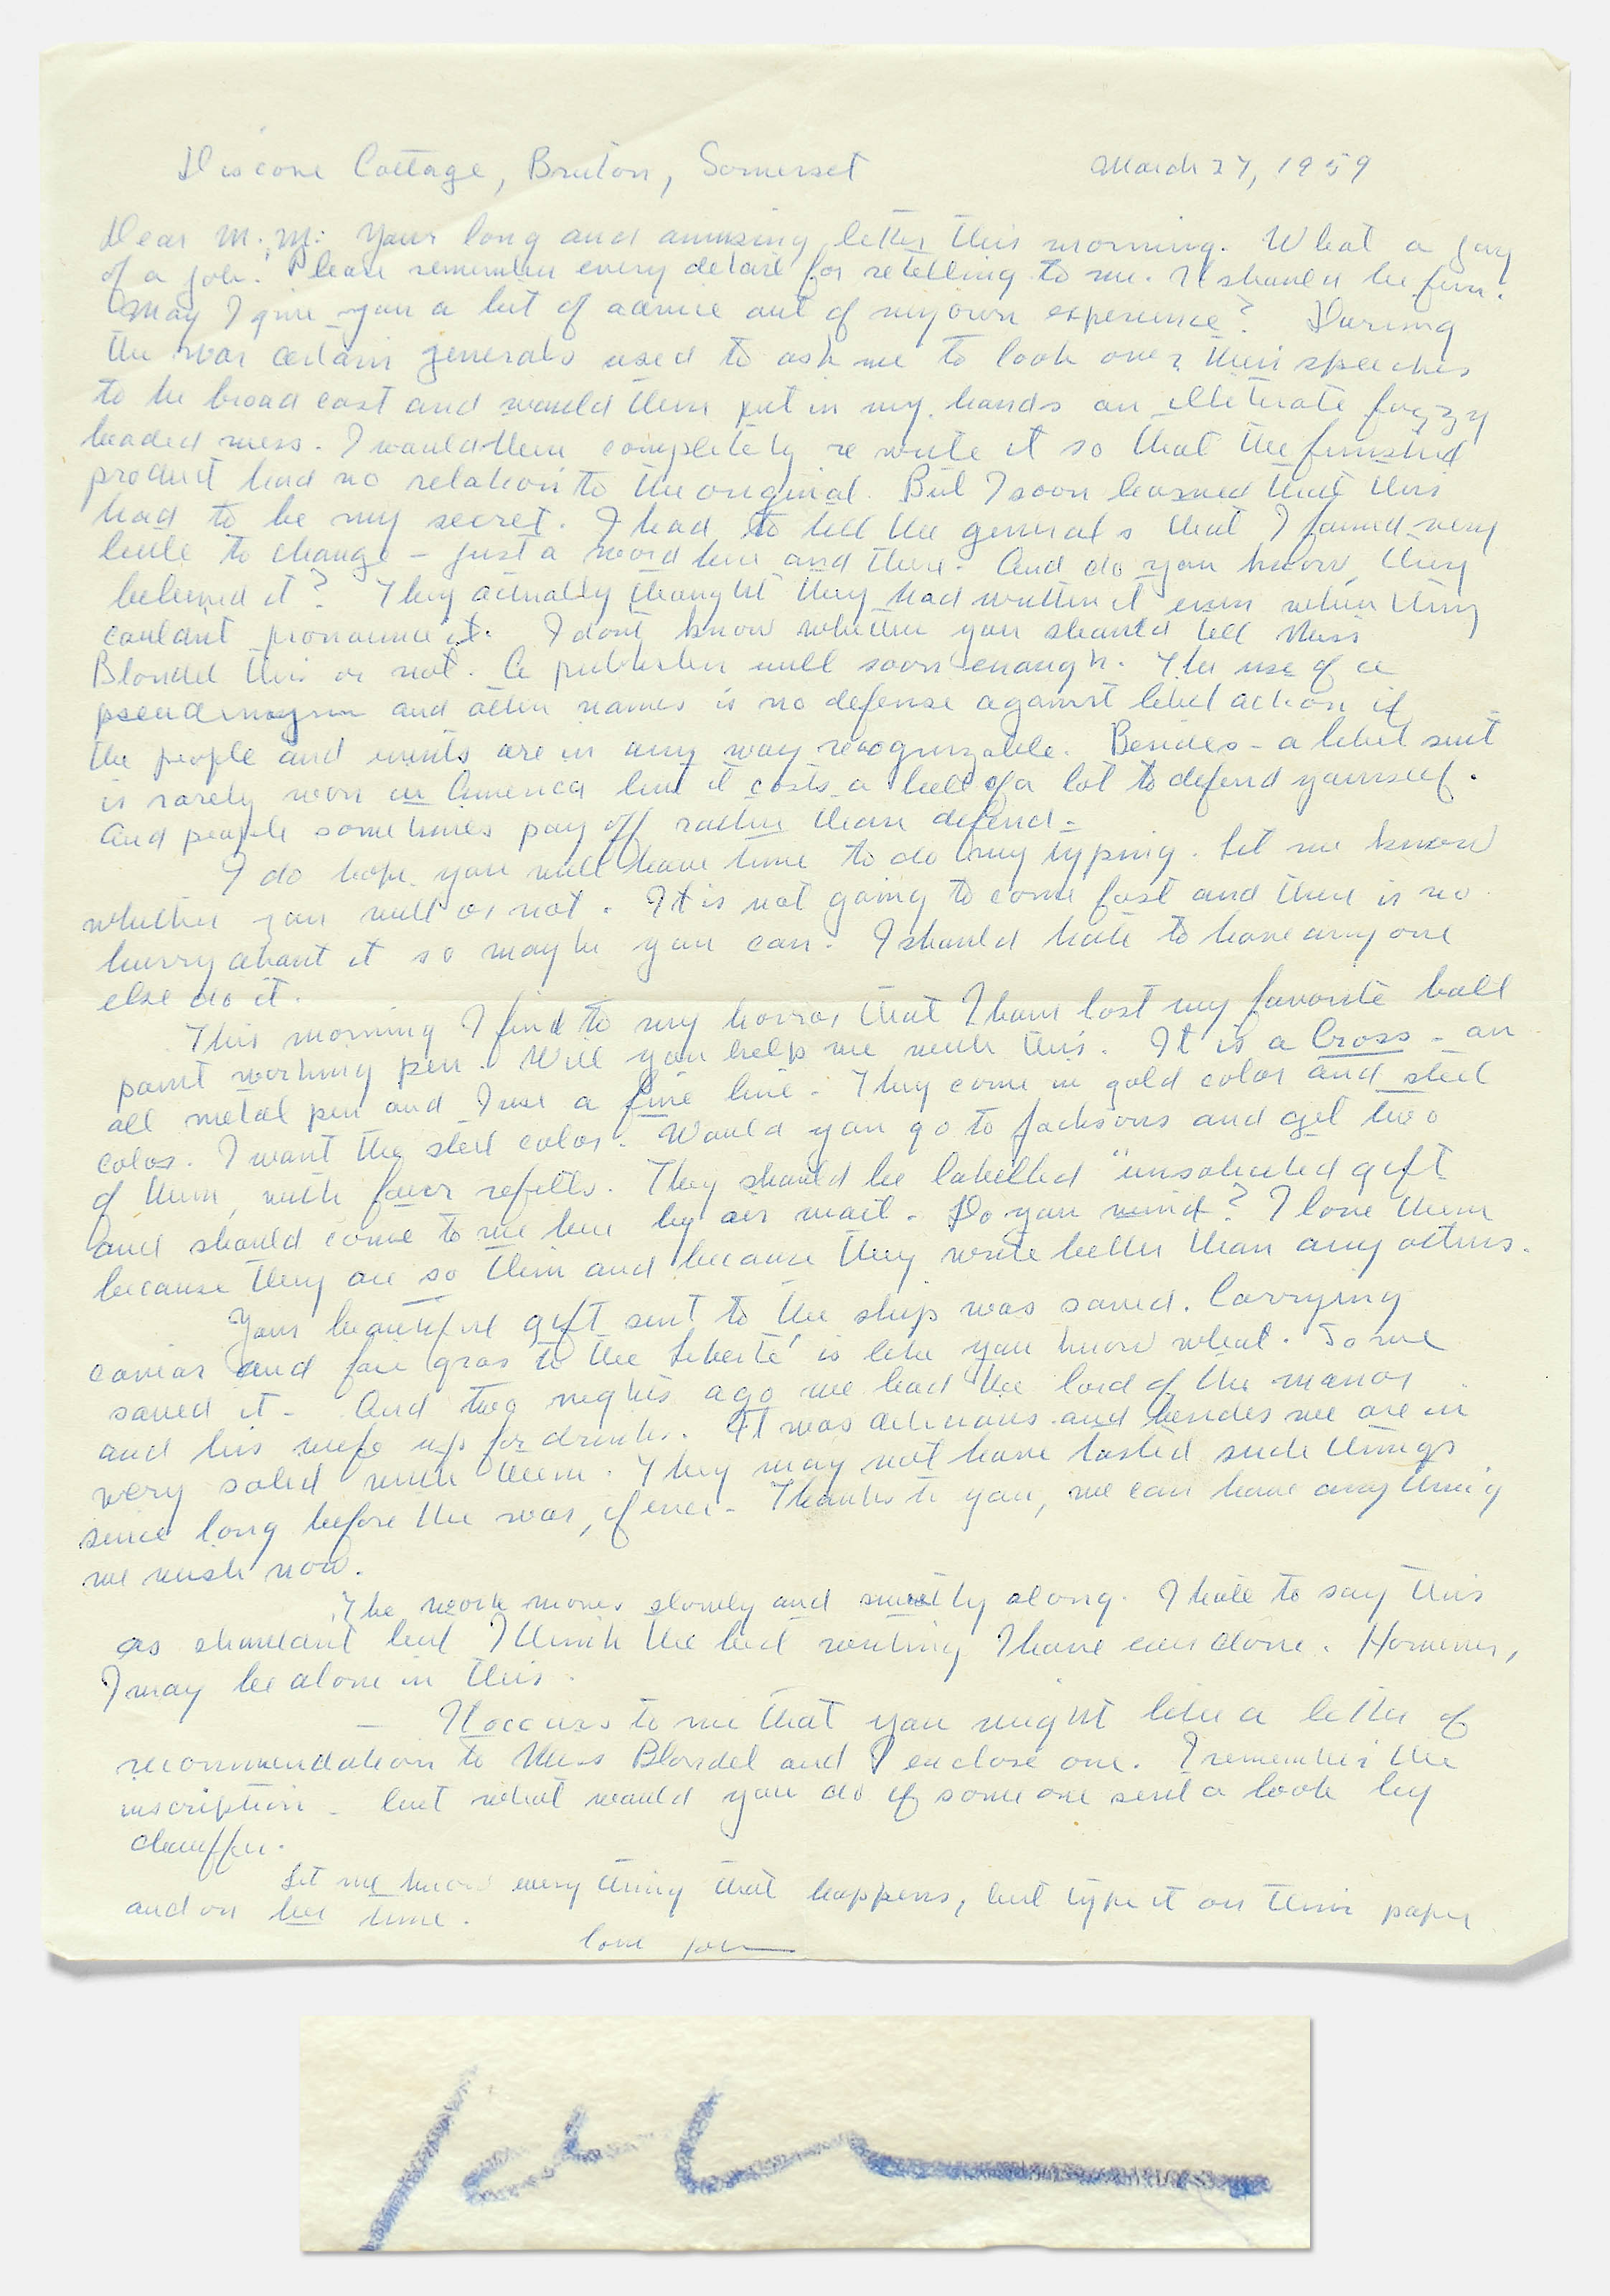 Discove Cottage, Bruton, Somerset March 27, 1959
Dear M. M: Your long and amusing letter this morning. What a joy
of a job! Please remember every detail for retelling to me. It should be fun.
May I give you a bit of advice out of my own experience? During
the war certain generals used to ask me to look over their speeches
to be broad cast and would then put in my hands an illiterate fuzzy
headed mess. I would then completely re write it so that the finished
product had no relation to the original. But I soon learned that this
had to be my secret. I had to tell the generals that I found very
little to change – just a word here and there. And do you know, they
believed it? They actually thought they had written it even when they
couldnt pronounce it. I dont know whether you should tell Miss
Blondel this or not. A publisher will soon enough. The use of a
pseudinoym and other names is no defense against libel action if
the people and events are in any way recognizable. Besides – a libel suit
is rarely won in America but it costs a hell of a lot to defend yourself.
And people sometimes pay off rather than defend –
I do hope you will have time to do my typing. Let me know
whether you will or not. It is not going to come fast and there is no
hurry about it so maybe you can. I should hate to have any one
else do it.
This morning I find to my horror that I have lost my favorite ball
point working pen. Will you help me with this. It is a Cross – an
all metal pen and I use a fine line. They come in gold color and steel
color. I want the steel color. Would you go to Jacksons and get two
of them, with four refills. They should be labelled "unsolicited gift
and should come to me here by air mail. Do you mind? I love them
because they are so thin and because they write better than any others.
Your beautiful gift sent to the ship was saved. Carrying
caviar and foie gras to the Liberté is like you know what. So we
saved it – And two nights ago we had the lord of the manor
and his wife up for drinks. It was delicious and besides we are in
very solid with them. They may not have tasted such things
since long before the war, if ever – Thanks to you, we can have any thing
we wish now.
The work moves slowly and sweetly along. I hate to say this
as shouldnt but I think the best writing I have ever done. However,
I may be alone in this.
– It occurs to me that you might like a letter of
recommendation to Miss Blondel and I enclose one. I remember the
inscription – but what would you do if some one sent a book by
chauffer.
Let me know every thing that happens, but type it on thin paper
and on her time.
love John
John